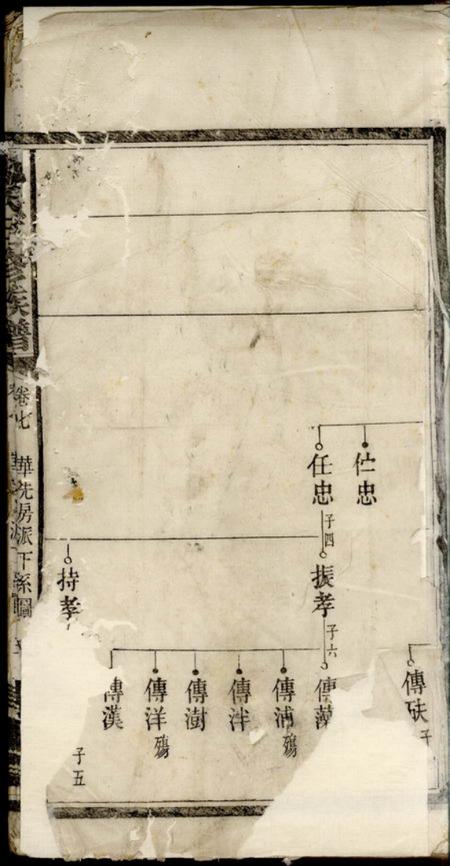 仕忠
任忠
子四
振孝
子六
持孝
傳
傳浦
殤
傳泮
傳澍
傳洋
殤
傳漢
傳
子五
氏五修族譜
卷七
華先房派下系圖